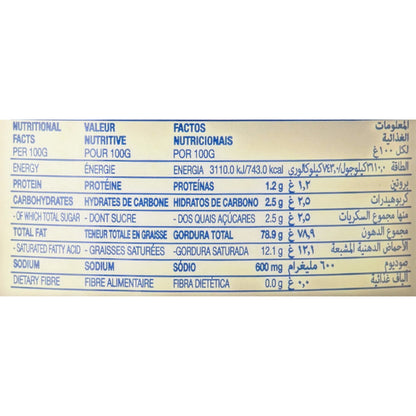 NUTRITIONAL VALEUR FACTOS المعلومات
FACTS NUTRITIVE NUTRICIONAIS الغذائية
PER 100G POUR 100G POR 100G لكل ١٠٠غ
ENERGY ÉNERGIE ENERGIA 3110.0 kJ/743.0 kcal الطاقة ٣١١٠,٠كيلوجول/٧٤٣,٠كيلوكالوري
PROTEIN PROTÉINE PROTEÍNAS 1.2 g بروتين ١,٢ غ
CARBOHYDRATES HYDRATES DE CARBONE HIDRATOS DE CARBONO 2.5 g كربوهيدرات ٢,٥ غ
- OF WHICH TOTAL SUGAR - DONT SUCRE - DOS QUAIS AÇÚCARES 2.5 g منها مجموع السكريات ٢,٥ غ
TOTAL FAT TENEUR TOTALE EN GRAISSE GORDURA TOTAL 78.9 g مجموع الدهون ٧٨,٩ غ
- SATURATED FATTY ACID - GRAISSES SATURÉES -GORDURA SATURADA 12.1 g الأحماض الدهنية المشبعة ١٢,١ غ
SODIUM SODIUM SÓDIO 600 mg صوديوم ٦٠٠ ملليغرام
DIETARY FIBRE FIBRE ALIMENTAIRE FIBRA DIETÉTICA 0.0 g ألياف غذائية ٠,٠ غ